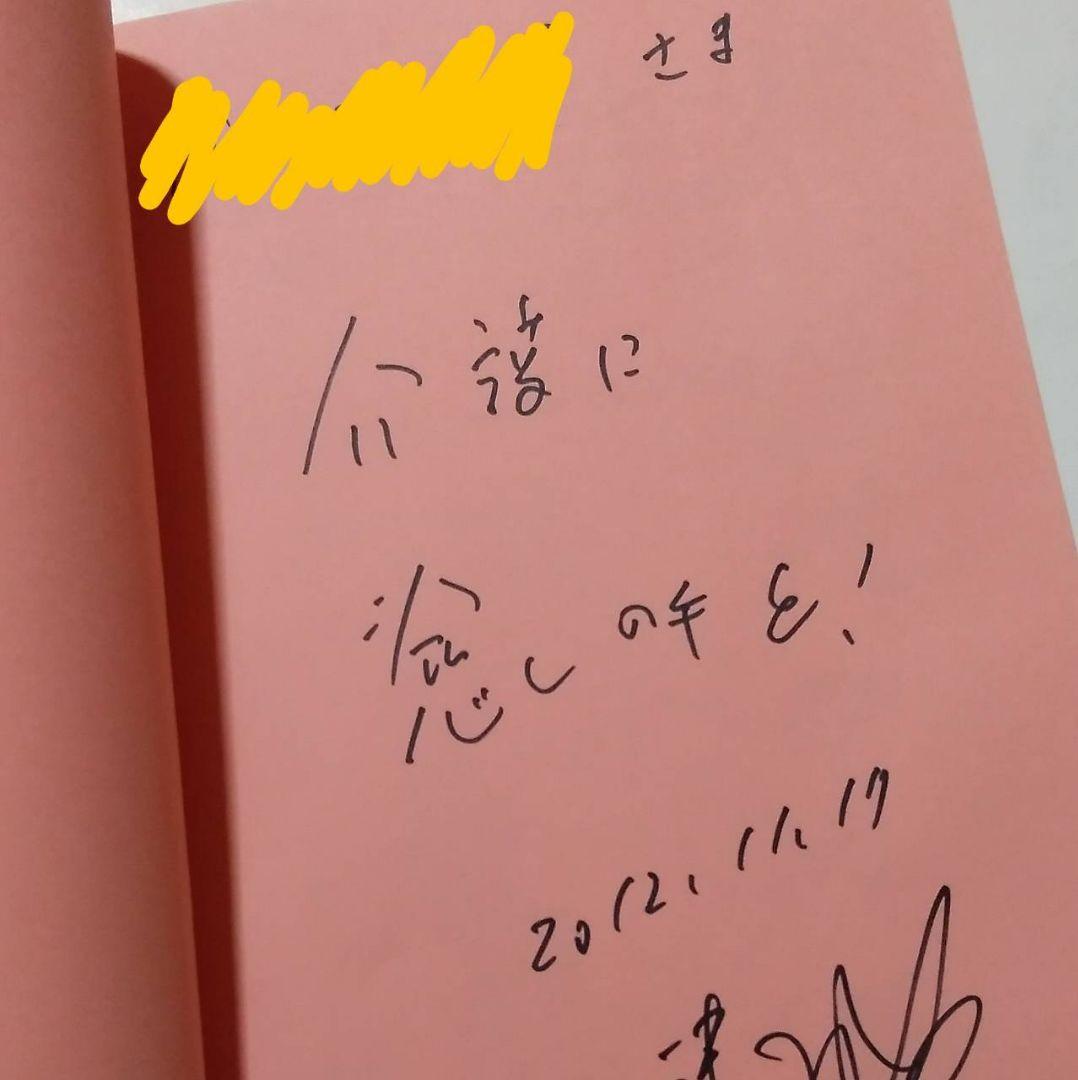 さま
介護に
癒しの手を!
2012.11.17